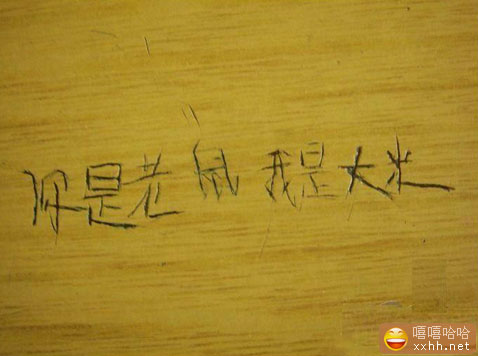 你是老鼠 我是大米
嘻嘻哈哈
xxhh.net